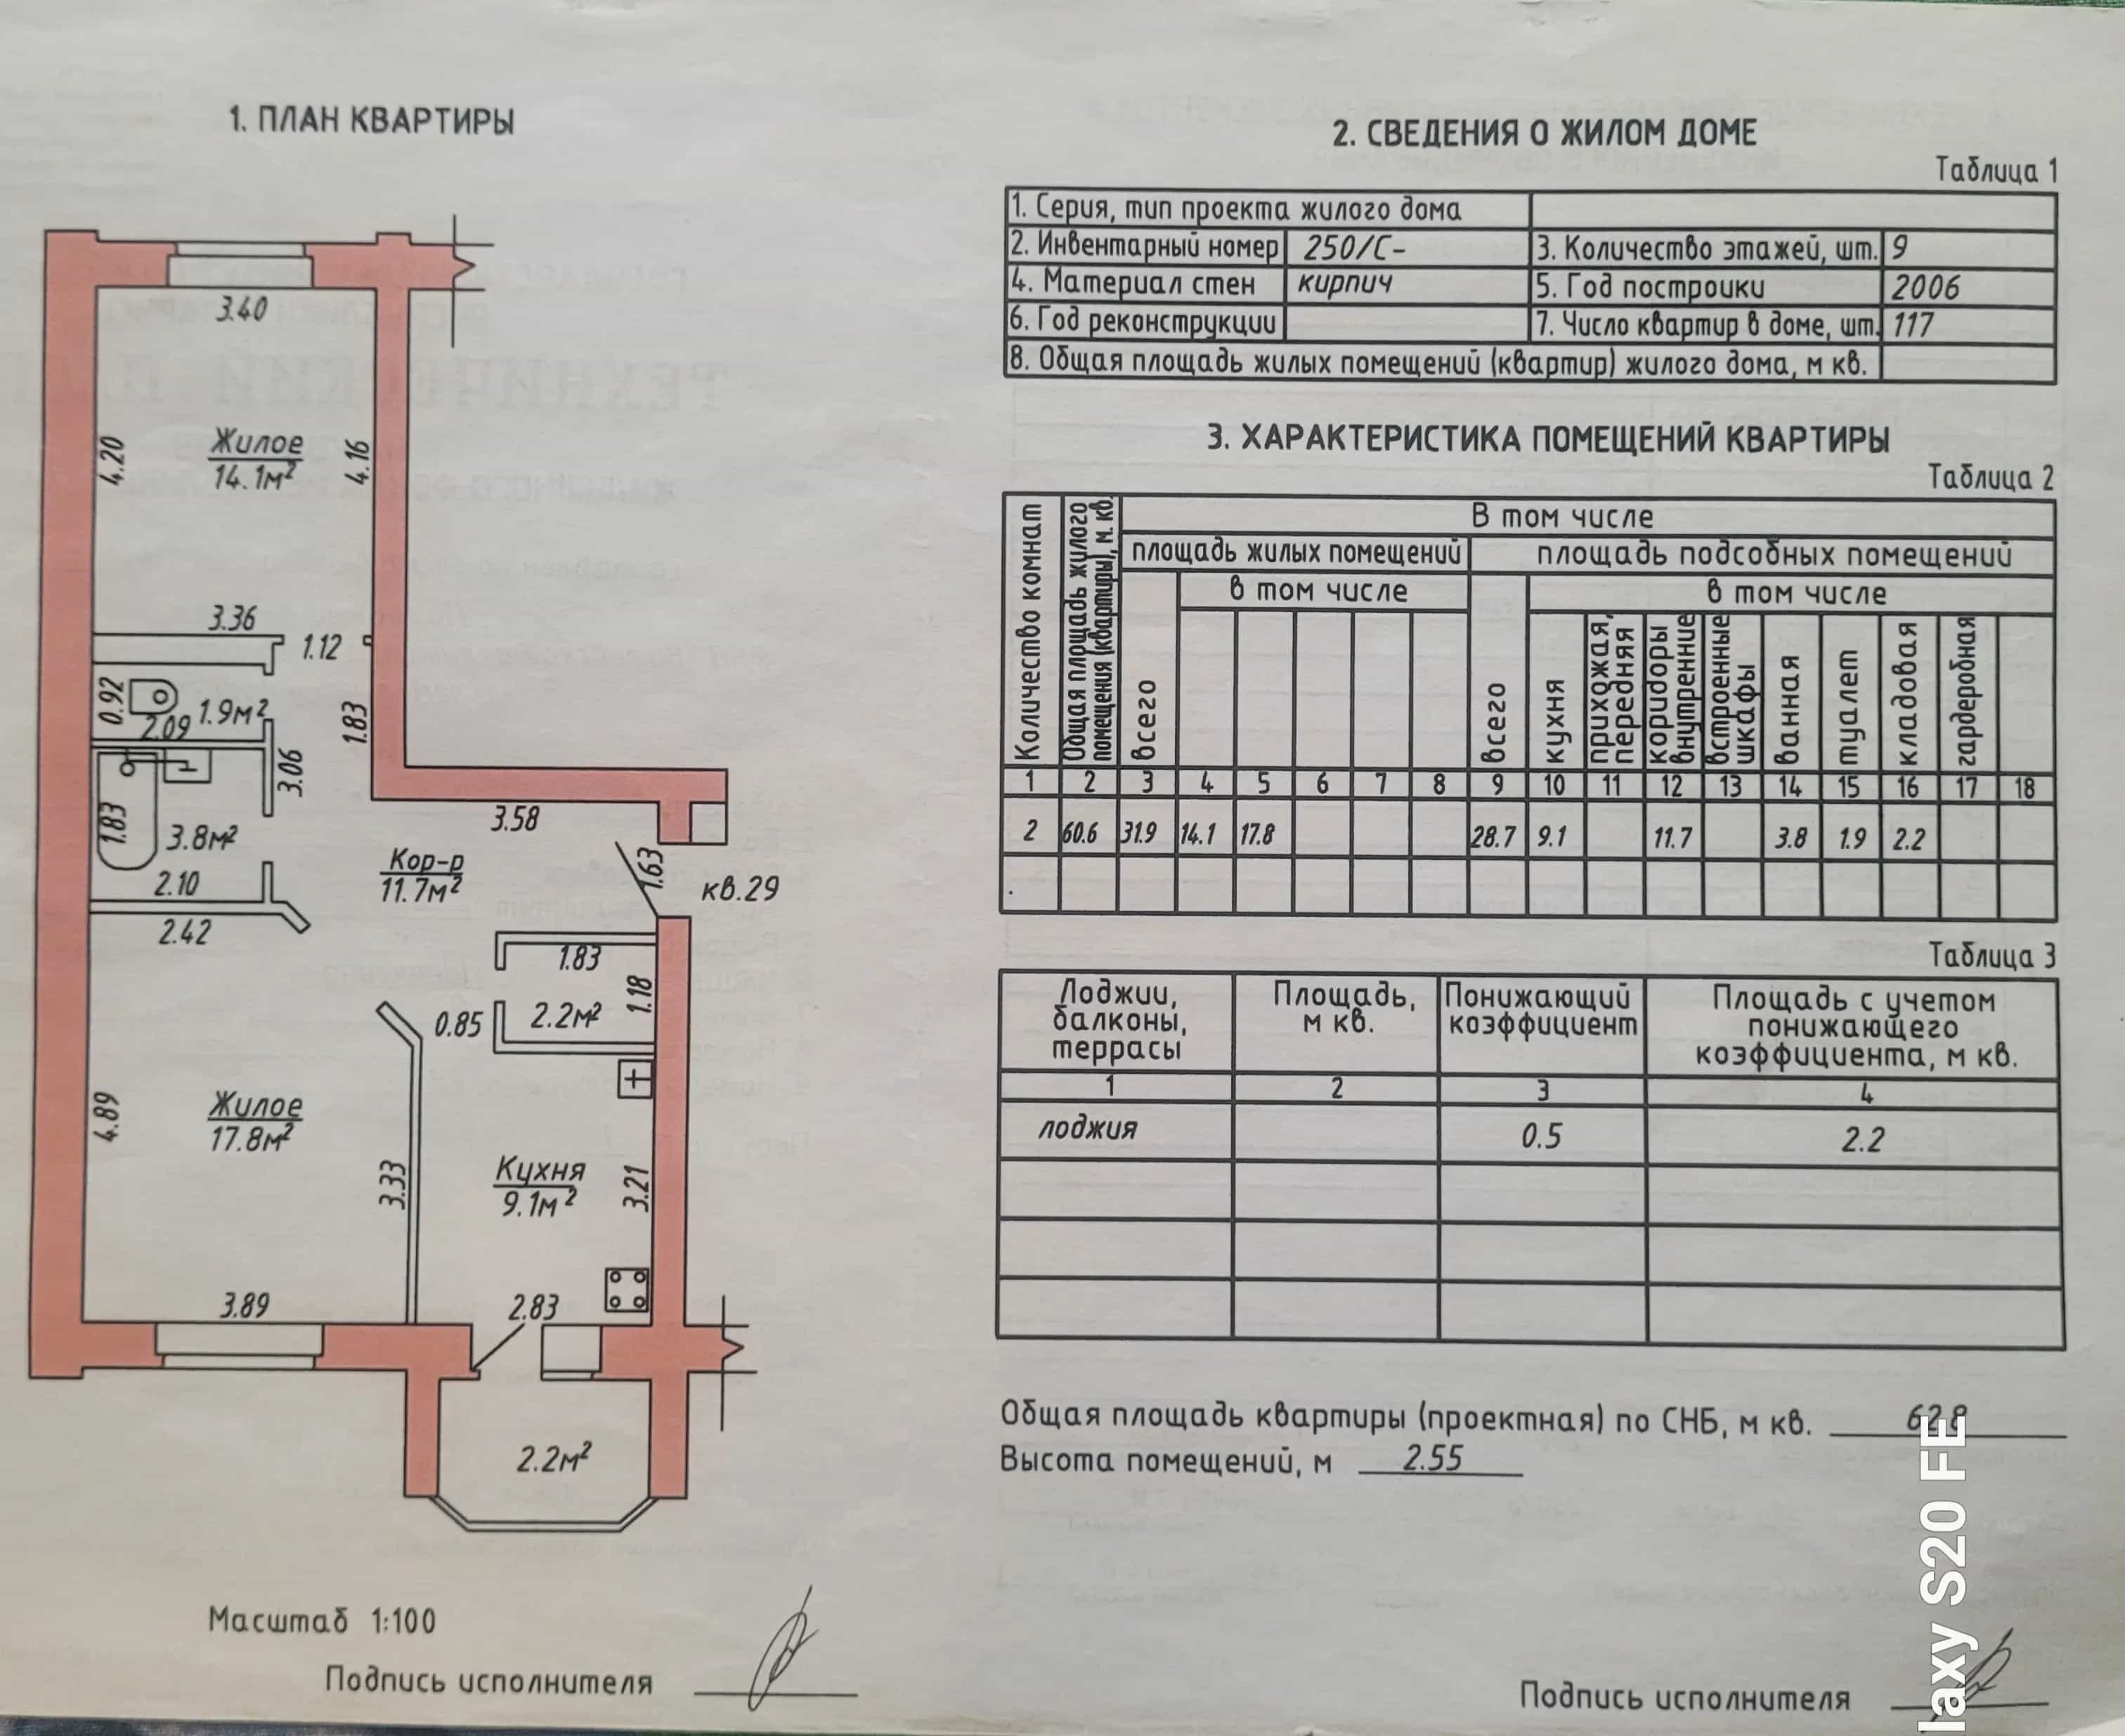 1. ПЛАН КВАРТИРЫ
3.40
4.20
Жилое
14.1м²
4.16
3.36
1.12
0.92
2.09
1.9м²
1.83
3.06
1.83
3.8м²
2.10
2.42
3.58
Кор-р
11.7м²
1.63
кв.29
1.83
1.18
0.85
2.2м²
4.89
Жилое
17.8м²
3.33
Кухня
9.1м²
3.21
3.89
2.83
2.2м²
Масштаб 1:100
Подпись исполнителя
2. СВЕДЕНИЯ О ЖИЛОМ ДОМЕ
Таблица 1
1. Серия, тип проекта жилого дома
2. Инвентарный номер 250/С- 3. Количество этажей, шт. 9
4. Материал стен кирпич 5. Год постройки 2006
6. Год реконструкции 7. Число квартир в доме, шт. 117
8. Общая площадь жилых помещений (квартир) жилого дома, м кв.
3. ХАРАКТЕРИСТИКА ПОМЕЩЕНИЙ КВАРТИРЫ
Таблица 2
Количество комнат
Общая площадь жилого
помещения (квартиры), м. кв.
В том числе
площадь жилых помещений
площадь подсобных помещений
в том числе
в том числе
всего
всего
кухня
прихожая,
передняя
коридоры
внутренние
встроенные
шкафы
ванная
туалет
кладовая
гардеробная
1 2 3 4 5 6 7 8 9 10 11 12 13 14 15 16 17 18
2 60.6 31.9 14.1 17.8 28.7 9.1 11.7 3.8 1.9 2.2
Таблица 3
Лоджии,
балконы,
террасы
Площадь,
м кв.
Понижающий
коэффициент
Площадь с учетом
понижающего
коэффициента, м кв.
1 2 3 4
лоджия 0.5 2.2
Общая площадь квартиры (проектная) по СНБ, м кв. 62.8
Высота помещений, м 2.55
Подпись исполнителя
laxy S20 FE